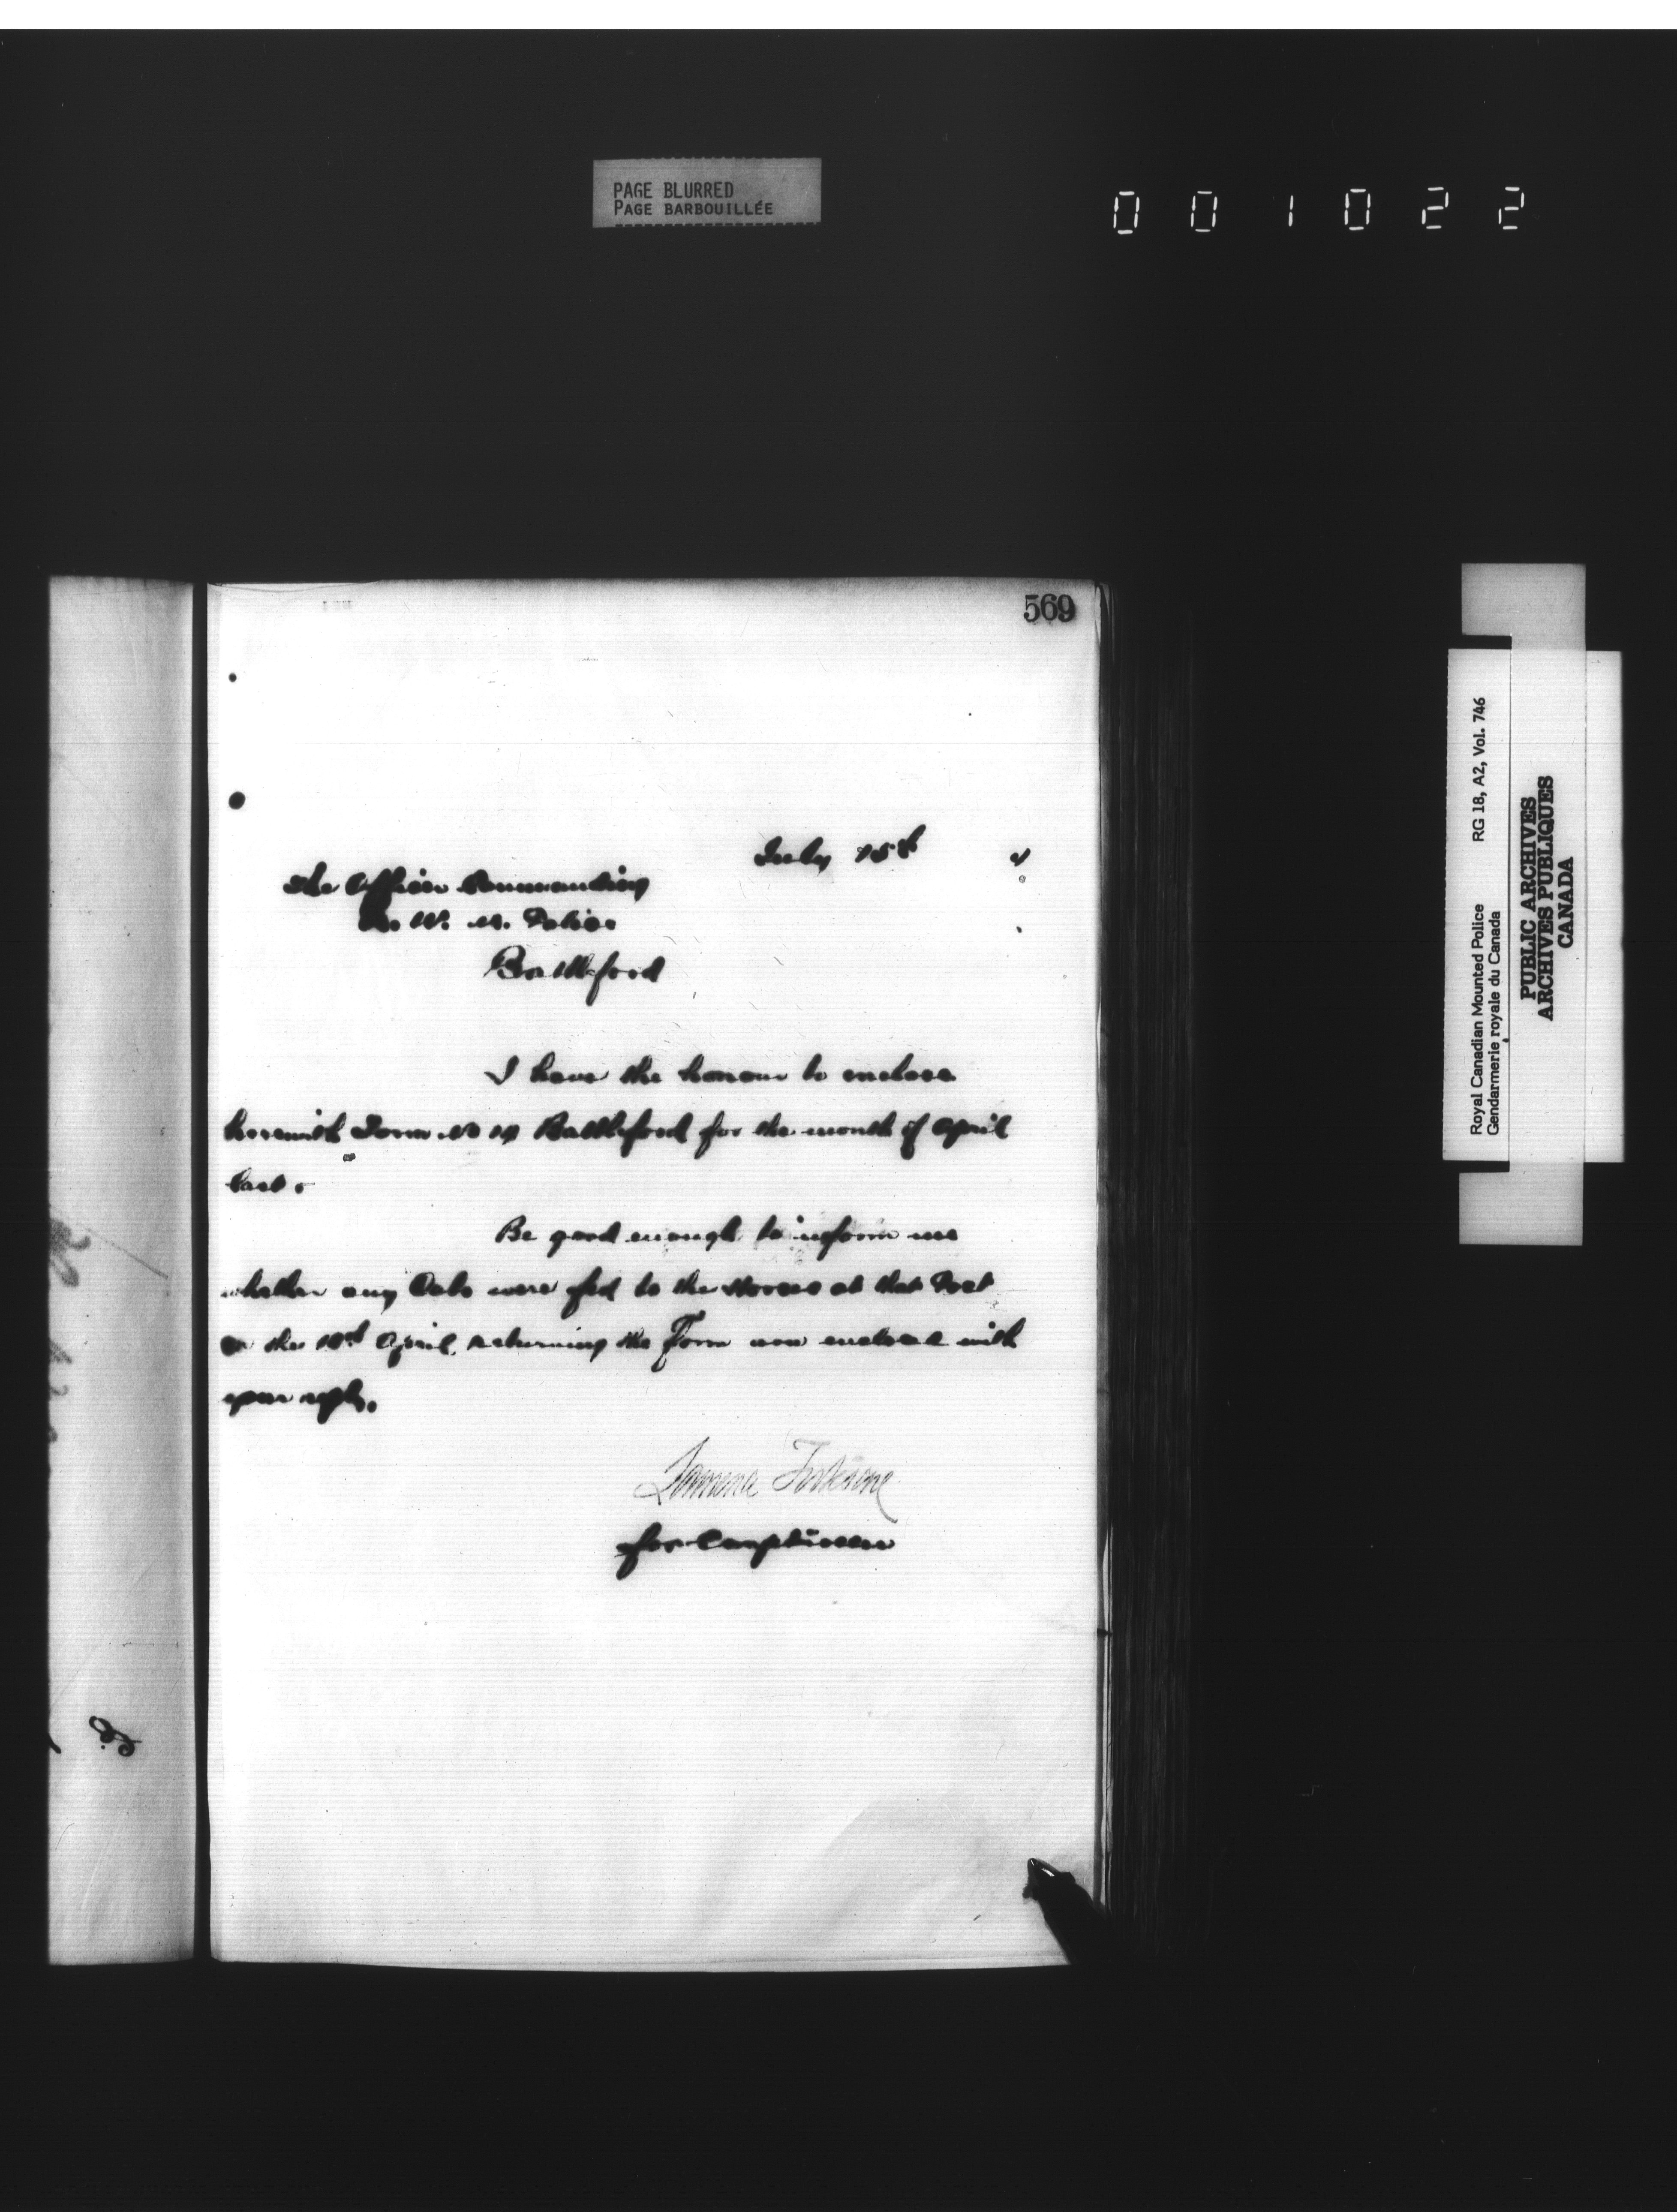 PAGE BLURRED
PAGE BARBOUILLÉE
001022
569
July 15th
The Officer Commanding
N. W. M. Police
Battleford
I have the honour to enclose
herewith Form No Battleford for the month of April
last.
Be good enough to inform me
whether any Oats were fed to the Horses at that Post
on the April, returning the Form now enclosed with
your reply.
for Comptroller
Royal Canadian Mounted Police RG 18, A2, Vol. 746
Gendarmerie royale du Canada
PUBLIC ARCHIVES
ARCHIVES PUBLIQUES
CANADA